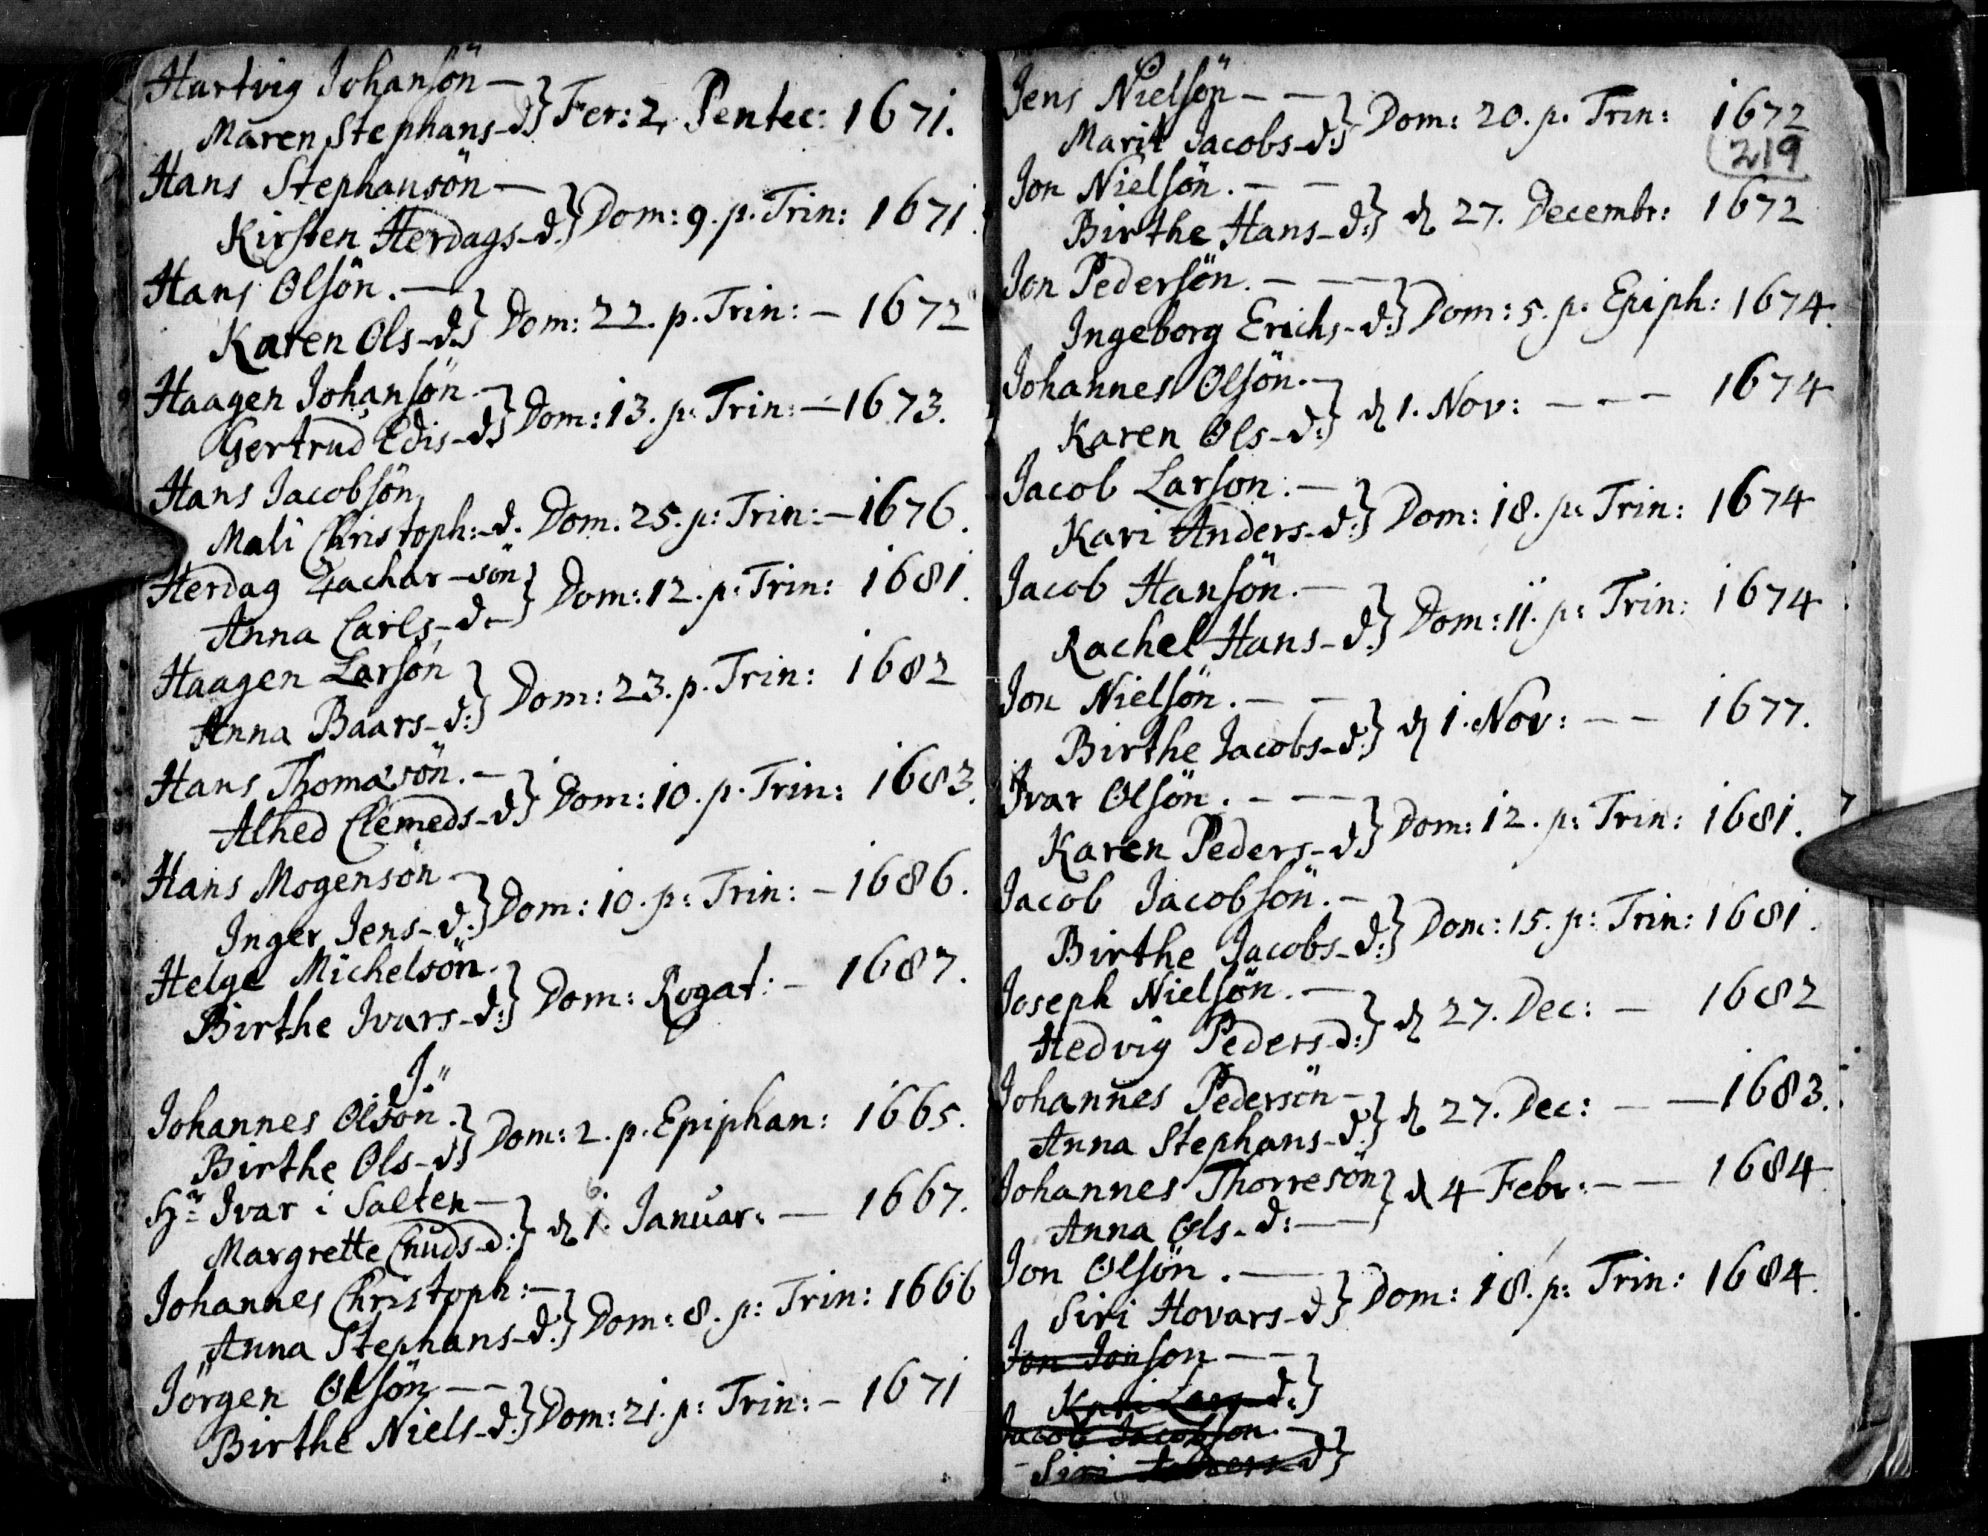 Hartvig Johansön — } Fer: 2. Pentec: 1671.
Maren Stephans-d:
Hans Stephansön — } Dom: 9. p. Trin: 1671.
Kirsten Herdags-d:
Hans Olsön. — } Dom: 22. p. Trin: — 1672
Karen Ols-d:
Haagen Johansön — } Dom: 13. p: Trin: — 1673.
Gertrud Edis-d:
Hans Jacobsön
Mali Christoph:-d. Dom. 25. p: Trin: — 1676.
Herdag Zachar-sön } Dom: 12. p: Trin: 1681.
Anna Carls-d. —
Haagen Larsön } Dom: 23. p. Trin: 1682
Anna Baars-d:
Hans Thomasön. — } Dom: 10. p. Trin: 1683.
Alhed Clemeds-d:
Hans Mogensön — } Dom: 10. p: Trin: — 1686.
Inger Jens-d:
Helge Michelsön. } Dom: Rogat: — 1687.
Birthe Ivars-d:
J.
Johannes Olsön. } Dom: 2. p. Epiphan: 1665.
Birthe Ols-d:
Hr Ivar i Salten — } d 1. Januar: — 1667.
Margrette Cnuds-d:
Johannes Christoph: — } Dom: 8. p: Trin: 1666
Anna Stephans-d:
Jörgen Olsön — — } Dom: 21. p: Trin: — 1671
Birthe Niels-d:
Jens Nielsön — — } Dom: 20. p. Trin: 1672
Marit Jacobs-d:
219
Jon Nielsön. — — } d 27. Decembr: 1672
Birthe Hans-d:
Jon Pedersön. — — } Dom: 5. p. Epiph: 1674.
Ingeborg Erichs-d:
Johannes Olsön. — } d 1. Nov: — — — 1674
Karen Ols-d:
Jacob Larson. — } Dom: 18. p: Trin: 1674
Kari Anders-d:
Jacob Hansön. — } Dom: 11. p: Trin: 1674
Rachel Hans-d:
Jon Nielsön. — — } d 1. Nov: — — 1677.
Birthe Jacobs-d:
Ivar Olsön. — — } Dom: 12. p: Trin: 1681.
Karen Peders-d:
Jacob Jacobsön. — } Dom: 15. p: Trin: 1681.
Birthe Jacobs-d:
Joseph Nielsön. — } d 27. Dec: — 1682
Hedvig Peders-d:
Johannes Pedersön — } d 27. Dec: — — 1683.
Anna Stephans-d:
Johannes Thorresön } d 4 Febr: — — 1684
Anna Ols-d: —
Jon Olsön. — } Dom: 18. p: Trin: 1684.
Siri Hovars-d:
Jon Jonson — — }
Kari Lars-d:
Jacob Jacobson. — }
Siri d: